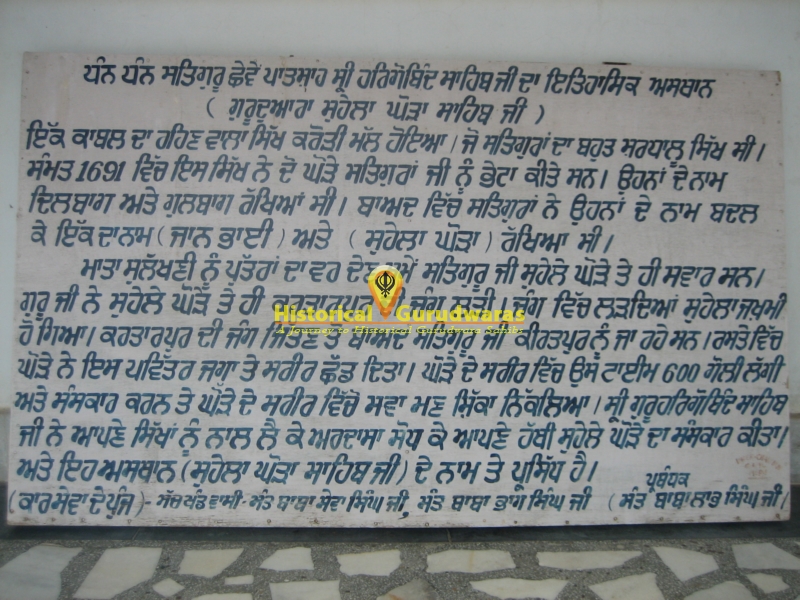 ਧੰਨ ਧੰਨ ਸਤਿਗੁਰੂ ਛੇਵੇਂ ਪਾਤਸ਼ਾਹ ਸ੍ਰੀ ਹਰਿਗੋਬਿੰਦ ਸਾਹਿਬ ਜੀ ਦਾ ਇਤਿਹਾਸਿਕ ਅਸਥਾਨ
( ਗੁਰੂਦੁਆਰਾ ਸੁਹੇਲਾ ਘੋੜਾ ਸਾਹਿਬ ਜੀ )
ਇੱਕ ਕਾਬਲ ਦਾ ਰਹਿਣ ਵਾਲਾ ਸਿੱਖ ਕਰੋੜੀ ਮੱਲ ਹੋਇਆ। ਜੋ ਸਤਿਗੁਰਾਂ ਦਾ ਬਹੁਤ ਸ਼ਰਧਾਲੂ ਸਿੱਖ ਸੀ।
ਸੰਮਤ 1691 ਵਿੱਚ ਇਸ ਸਿੱਖ ਨੇ ਦੋ ਘੋੜੇ ਸਤਿਗੁਰਾਂ ਜੀ ਨੂੰ ਭੇਟਾ ਕੀਤੇ ਸਨ। ਉਹਨਾਂ ਦੇ ਨਾਮ
ਦਿਲਬਾਗ ਅਤੇ ਗੁਲਬਾਗ ਰੱਖਿਆਂ ਸੀ। ਬਾਅਦ ਵਿੱਚ ਸਤਿਗੁਰਾਂ ਨੇ ਉਹਨਾਂ ਦੇ ਨਾਮ ਬਦਲ
ਕੇ ਇੱਕ ਦਾ ਨਾਮ (ਜਾਨ ਭਾਈ) ਅਤੇ ( ਸੁਹੇਲਾ ਘੋੜਾ) ਰੱਖਿਆ ਸੀ।
ਮਾਤਾ ਸੁਲੱਖਣੀ ਨੂੰ ਪੁੱਤਰਾਂ ਦਾ ਵਰ ਸਤਿਗੁਰੂ ਜੀ ਸੁਹੇਲੇ ਘੋੜੇ ਤੇ ਹੀ ਸਵਾਰ ਸਨ।
ਗੁਰੂ ਜੀ ਨੇ ਸੁਹੇਲੇ ਘੋੜੇ ਤੇ ਹੀ ਕਰਤਾਰਪੁਰ ਜੰਗ ਲੜੀ। ਜੰਗ ਵਿੱਚ ਲੜਦਿਆਂ ਸੁਹੇਲਾ ਜਖ਼ਮੀ
ਹੋ ਗਿਆ। ਕਰਤਾਰਪੁਰ ਦੀ ਜੰਗ ਬਾਅਦ ਸਤਿਗੁਰੂ ਜੀ ਕੀਰਤਪੁਰ ਨੂੰ ਜਾ ਰਹੇ ਸਨ। ਰਸਤੇ ਵਿੱਚ
ਘੋੜੇ ਨੇ ਇਸ ਪਵਿੱਤਰ ਜਗ੍ਹਾ ਤੇ ਸਰੀਰ ਛੱਡ ਦਿਤਾ। ਘੋੜੇ ਦੇ ਸਰੀਰ ਵਿੱਚ ਉਸ ਟਾਈਮ 600 ਗੋਲੀ ਲੱਗੀ
ਅਤੇ ਸੰਸਕਾਰ ਕਰਨ ਤੇ ਘੋੜੇ ਦੇ ਸਰੀਰ ਵਿੱਚੋ ਸਵਾ ਮਣ ਸਿੱਕਾ ਨਿੱਕਲਿਆ। ਸ੍ਰੀ ਗੁਰੂ ਹਰਿਗੋਬਿੰਦ ਸਾਹਿਬ
ਜੀ ਨੇ ਆਪਣੇ ਸਿੱਖਾਂ ਨੂੰ ਨਾਲ ਲੈ ਕੇ ਅਰਦਾਸਾ ਸੋਧ ਕੇ ਆਪਣੇ ਹੱਥੀ ਸੁਹੇਲੇ ਘੋੜੇ ਦਾ ਸੰਸਕਾਰ ਕੀਤਾ।
ਅਤੇ ਇਹ ਅਸਥਾਨ (ਸੁਹੇਲਾ ਘੋੜਾ ਸਾਹਿਬ ਜੀ) ਦੇ ਨਾਮ ਤੇ ਪ੍ਰਸਿੱਧ ਹੈ।
ਪ੍ਰਬੰਧਕ
(ਕਾਰਸੇਵਾ ਦੇ ਪੁੰਜ) - ਸੱਚ ਖੰਡ ਵਾਸੀ - ਸੰਤ ਬਾਬਾ ਸੇਵਾ ਸਿੰਘ ਜੀ, ਸੰਤ ਬਾਬਾ ਭਾਗ ਸਿੰਘ ਜੀ ( ਸੰਤ ਬਾਬਾ ਲਾਭ ਸਿੰਘ ਜੀ)
Historical Gurudwaras
A Journey to Historical Gurudwara Sahibs